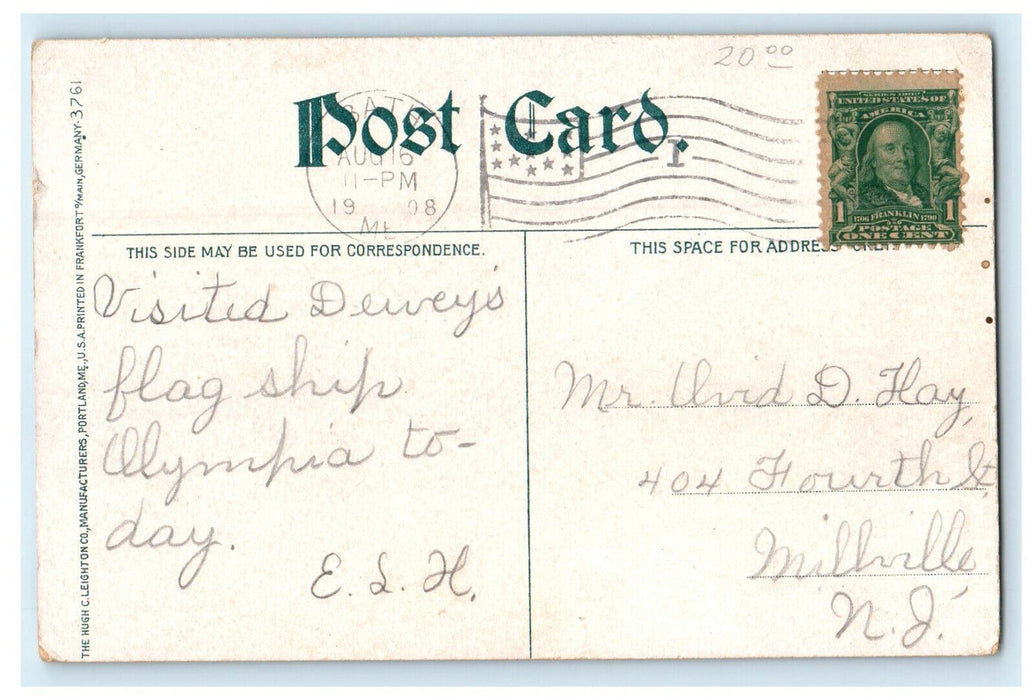 20 00
Post Card.
BATH
AUG 16
11-PM
19 08
ME
1
SERIES 1902
UNITED STATES OF
AMERICA
1 1
1706 FRANKLIN 1790
POSTAGE
ONE CENT
THIS SIDE MAY BE USED FOR CORRESPONDENCE.
THIS SPACE FOR ADDRESS ONLY.
Visited Dewey's
flag ship
Olympia to-
day.
E. L. H.
Mr. Uvid D. Hay,
404 Fourth St
Millville
N. J.
THE HUGH C. LEIGHTON CO., MANUFACTURERS, PORTLAND, ME., U.S.A. PRINTED IN FRANKFORT o/MAIN, GERMANY. 3761